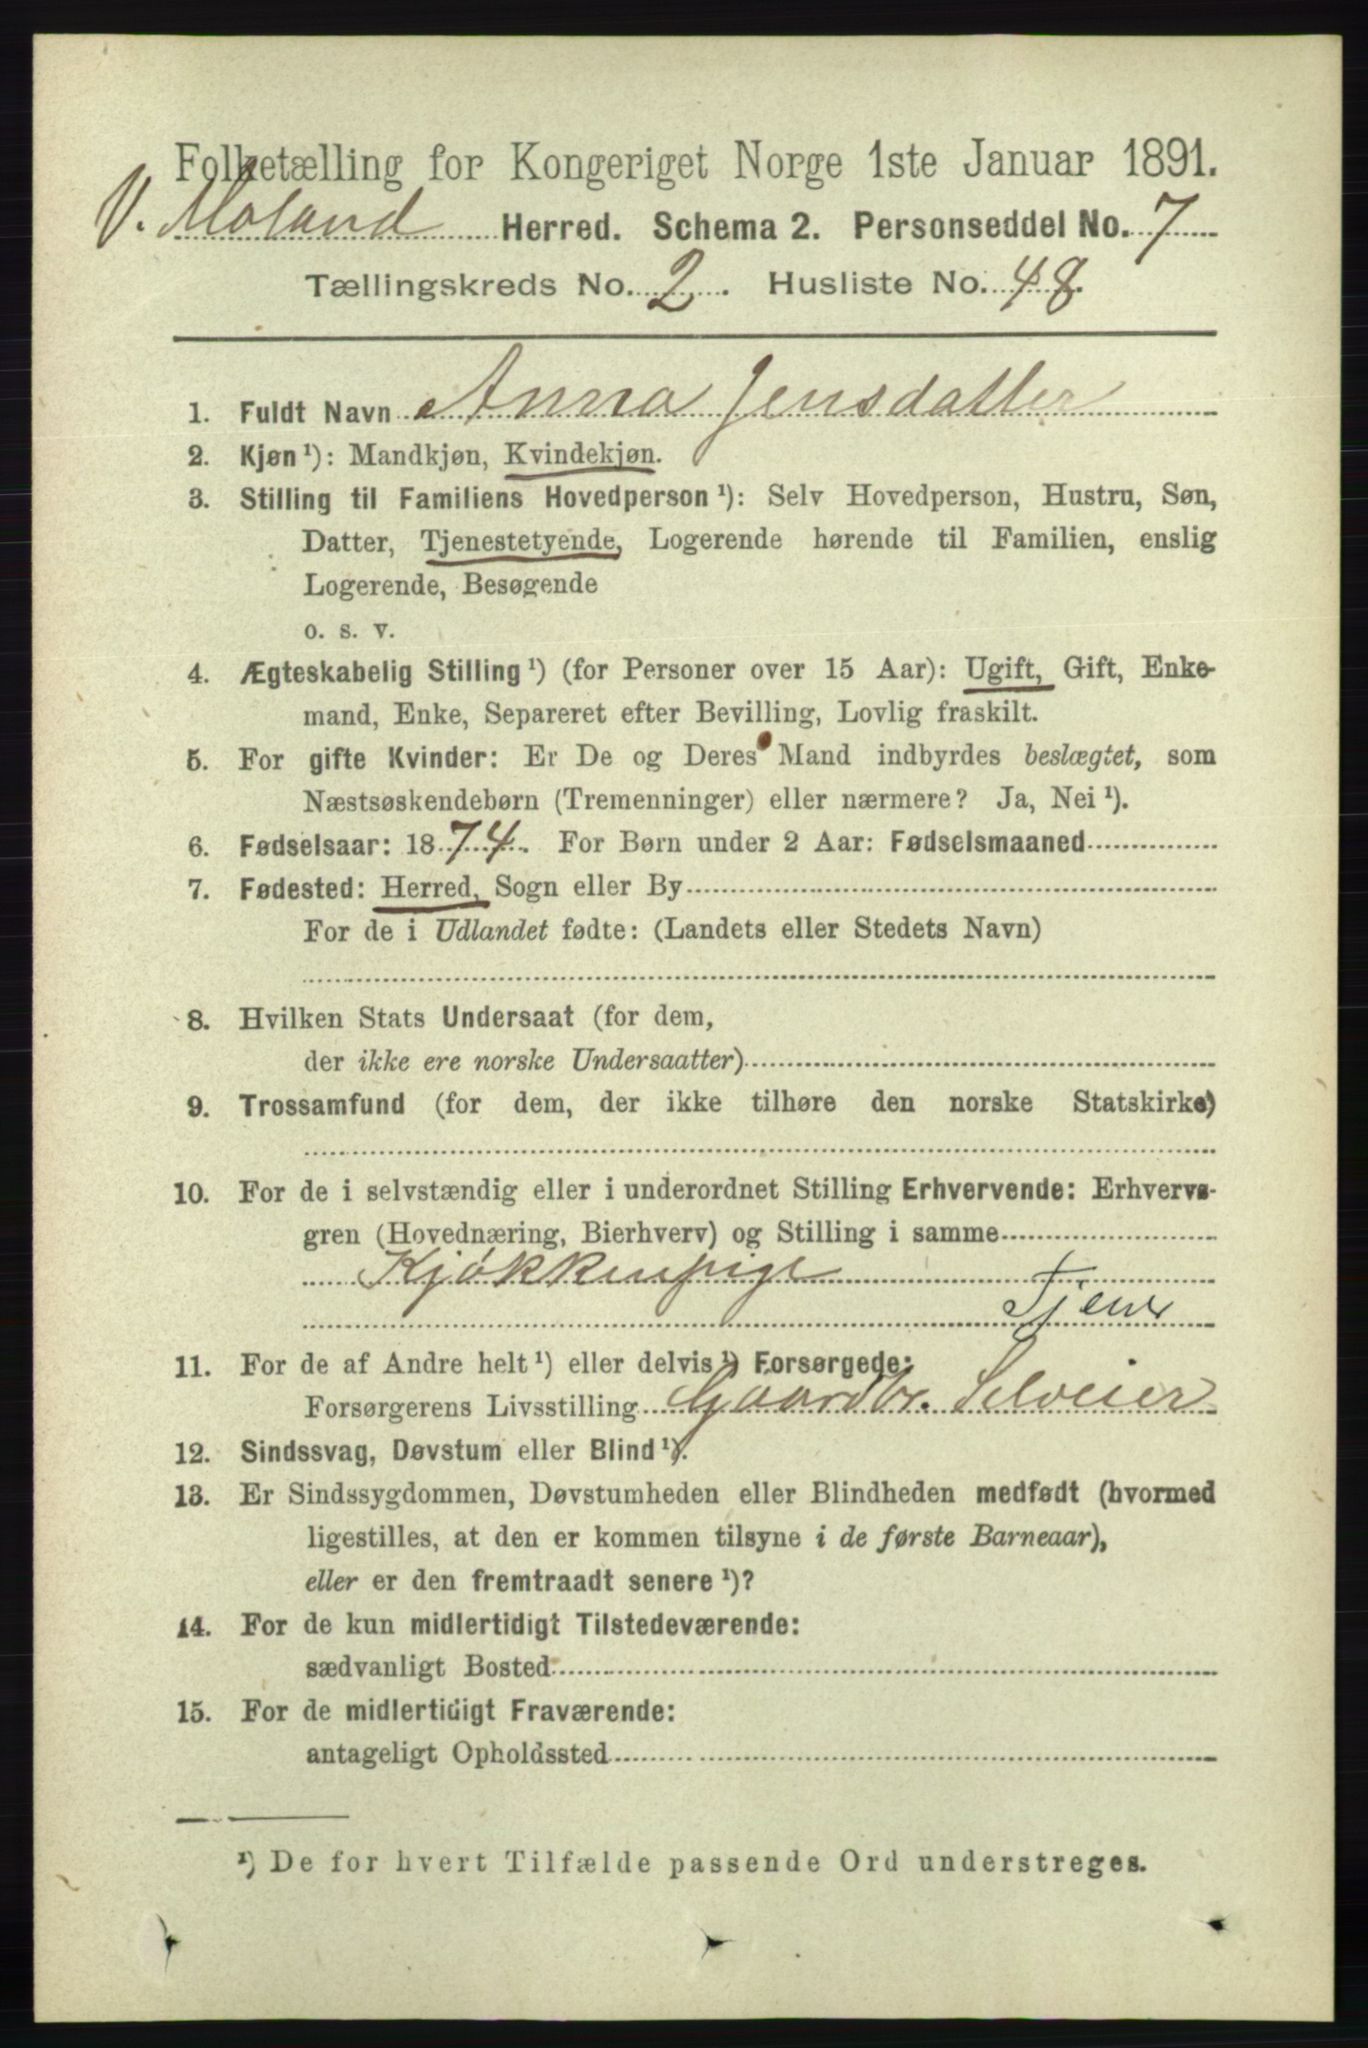 Folketælling for Kongeriget Norge 1ste Januar 1891.
V. Moland Herred. Schema 2. Personseddel No. 7
Tællingskreds No. 2. Husliste No. 48.
1. Fuldt Navn Anna Jensdatter
2. Kjøn ¹): Mandkjøn, Kvindekjøn.
3. Stilling til Familiens Hovedperson ¹): Selv Hovedperson, Hustru, Søn,
Datter, Tjenestetyende, Logerende hørende til Familien, enslig
Logerende, Besøgende
o. s. v.
4. Ægteskabelig Stilling ¹) (for Personer over 15 Aar): Ugift, Gift, Enke-
mand, Enke, Separeret efter Bevilling, Lovlig fraskilt.
5. For gifte Kvinder: Er De og Deres Mand indbyrdes beslægtet, som
Næstsøskendebørn (Tremenninger) eller nærmere? Ja, Nei ¹).
6. Fødselsaar: 1874. For Børn under 2 Aar: Fødselsmaaned
7. Fødested: Herred, Sogn eller By
For de i Udlandet fødte: (Landets eller Stedets Navn)
8. Hvilken Stats Undersaat (for dem,
der ikke ere norske Undersaatter)
9. Trossamfund (for dem, der ikke tilhøre den norske Statskirke)
10. For de i selvstændig eller i underordnet Stilling Erhvervende: Erhvervs-
gren (Hovednæring, Bierhverv) og Stilling i samme
Kjøkkenpige
Tjener
11. For de af Andre helt ¹) eller delvis ¹) Forsørgede:
Forsørgerens Livsstilling Gaardbr. Selveier
12. Sindssvag, Døvstum eller Blind ¹).
13. Er Sindssygdommen, Døvstumheden eller Blindheden medfødt (hvormed
ligestilles, at den er kommen tilsyne i de første Barneaar),
eller er den fremtraadt senere ¹)?
14. For de kun midlertidigt Tilstedeværende:
sædvanligt Bosted
15. For de midlertidigt Fraværende:
antageligt Opholdssted
¹) De for hvert Tilfælde passende Ord understreges.